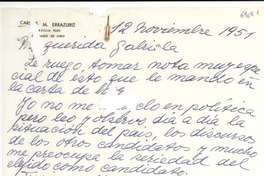 CARLOS M. ERRAZURIZ
12 Noviembre 1951
querida Gabriela
Le ruego, tomar nota muy espe
cial de esto que le mando en
la carta de
Yo no me en política
pero leo y observo, día a día la
situación del país, los discursos
de los otros candidatos y mucho
me preocupa la seriedad del
elegido como candidato.